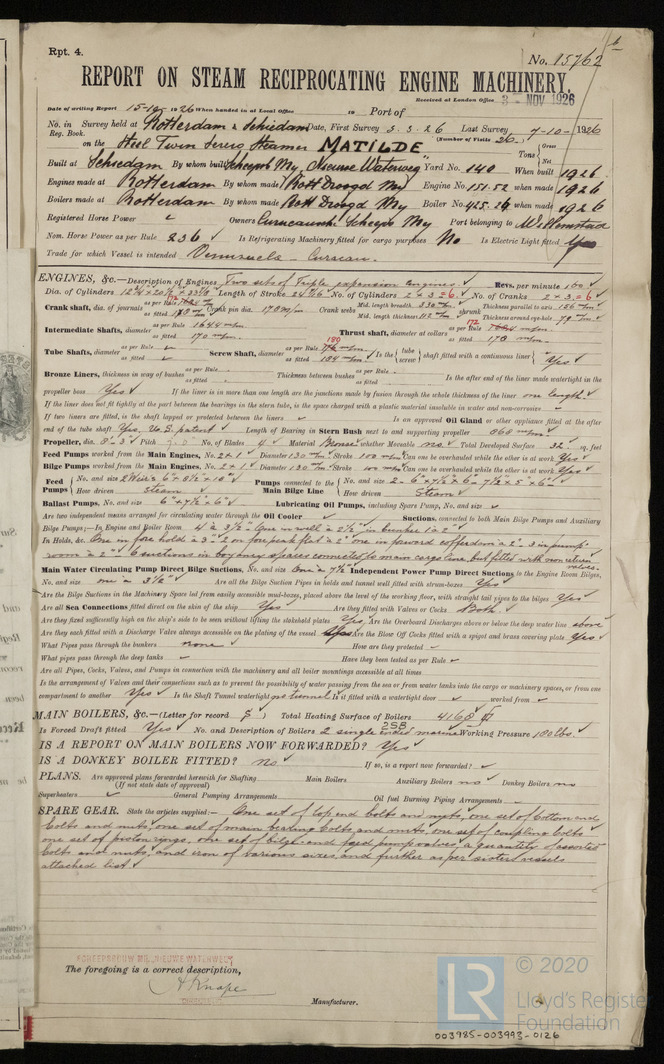 Rpt. 4.
No. 15762
REPORT ON STEAM RECIPROCATING ENGINE MACHINERY.
Received at London Office 3 NOV 1926
Date of writing Report 15-10-1926 When handed in at Local Office to Port of
No. in Survey held at Rotterdam & Schiedam Date, First Survey 3.3.26 Last Survey 7-10-1926
Reg. Book. (Number of Visits 26.)
on the Steel Twin Screw Steamer MATILDE Tons Gross Net
Built at Schiedam By whom built Scheepsb My "Nieuwe Waterweg" Yard No. 140 When built 1926
Engines made at Rotterdam By whom made Rott Droogd My Engine No. 151-52 when made 1926
Boilers made at Rotterdam By whom made Rott Droogd My Boiler No. 425.26 when made 1926
Registered Horse Power Owners Curacaosche Scheepv My Port belonging to Willemstad
Nom. Horse Power as per Rule 236 Is Refrigerating Machinery fitted for cargo purposes No Is Electric Light fitted Yes
Trade for which Vessel is intended Venezuela - Curacao.
ENGINES, &c.—Description of Engines Two sets of Triple expansion engines Revs. per minute 160
Dia. of Cylinders Length of Stroke No. of Cylinders 2 x 3 = 6. No. of Cranks 2 x 3 = 6
Crank shaft, dia. of journals as per Rule 172 as fitted Crank pin dia. 170 m/m Crank webs Mid. length breadth 330 m/m Mid. length thickness 112 m/m shrunk Thickness parallel to axis Thickness around eye-hole 79 m/m
Intermediate Shafts, diameter as per Rule 164.4 m/m as fitted 170 m/m Thrust shaft, diameter at collars as per Rule 172 as fitted 173 m/m
Tube Shafts, diameter as per Rule as fitted Screw Shaft, diameter as per Rule 180 as fitted Is the tube screw shaft fitted with a continuous liner Yes
Bronze Liners, thickness in way of bushes as per Rule as fitted Thickness between bushes as per Rule as fitted Is the after end of the liner made watertight in the
propeller boss Yes If the liner is in more than one length are the junctions made by fusion through the whole thickness of the liner one length
If the liner does not fit tightly at the part between the bearings in the stern tube, is the space charged with a plastic material insoluble in water and non-corrosive
If two liners are fitted, is the shaft lapped or protected between the liners Is an approved Oil Gland or other appliance fitted at the after
end of the tube shaft Yes, patent Length of Bearing in Stern Bush next to and supporting propeller 860 m/m
Propeller, dia. 8'-3" Pitch No. of Blades 4 Material Bronze whether Moveable no Total Developed Surface 32 sq. feet
Feed Pumps worked from the Main Engines, No. 2 x 1 Diameter 130 m/m Stroke 100 m/m Can one be overhauled while the other is at work Yes
Bilge Pumps worked from the Main Engines, No. 2 x 1 Diameter 130 m/m Stroke 100 m/m Can one be overhauled while the other is at work Yes
Feed Pumps No. and size 2 Weirs 6" x 8½" x 18" How driven Steam Pumps connected to the Main Bilge Line No. and size 2 - 6" x 7½" x 6" - 7½" x 5" x 6" How driven Steam
Ballast Pumps, No. and size 6" x 7½" x 6" Lubricating Oil Pumps, including Spare Pump, No. and size
Are two independent means arranged for circulating water through the Oil Cooler Suctions, connected to both Main Bilge Pumps and Auxiliary
Bilge Pumps;—In Engine and Boiler Room 4 à 3½" One in well à 2½" in bunker 1 à 2"
In Holds, &c. One in fore hold à 3" - 2 on forepeak flat à 2" one in forward cofferdam à 2" - 3 in pump-
room à 2" - 6 suctions in buoyancy spaces connected to main cargo line, but fitted with non return valves.
Main Water Circulating Pump Direct Bilge Suctions, No. and size One à 7½" Independent Power Pump Direct Suctions to the Engine Room Bilges,
No. and size one à 3½" Are all the Bilge Suction Pipes in holds and tunnel well fitted with strum-boxes Yes
Are the Bilge Suctions in the Machinery Space led from easily accessible mud-boxes, placed above the level of the working floor, with straight tail pipes to the bilges Yes
Are all Sea Connections fitted direct on the skin of the ship Yes Are they fitted with Valves or Cocks Both
Are they fixed sufficiently high on the ship's side to be seen without lifting the stokehold plates Yes Are the Overboard Discharges above or below the deep water line above
Are they each fitted with a Discharge Valve always accessible on the plating of the vessel Yes Are the Blow Off Cocks fitted with a spigot and brass covering plate Yes
What Pipes pass through the bunkers none How are they protected
What pipes pass through the deep tanks Have they been tested as per Rule
Are all Pipes, Cocks, Valves, and Pumps in connection with the machinery and all boiler mountings accessible at all times
Is the arrangement of Valves and their connections such as to prevent the possibility of water passing from the sea or from water tanks into the cargo or machinery spaces, or from one
compartment to another Yes Is the Shaft Tunnel watertight no tunnel Is it fitted with a watertight door worked from
MAIN BOILERS, &c.—(Letter for record S) Total Heating Surface of Boilers 4168
Is Forced Draft fitted Yes No. and Description of Boilers 2 single ended marine 2SB Working Pressure 180 lbs.
IS A REPORT ON MAIN BOILERS NOW FORWARDED? Yes
IS A DONKEY BOILER FITTED? No If so, is a report now forwarded?
PLANS. Are approved plans forwarded herewith for Shafting Main Boilers Auxiliary Boilers no Donkey Boilers no
(If not state date of approval)
Superheaters General Pumping Arrangements Oil fuel Burning Piping Arrangements
SPARE GEAR. State the articles supplied:— One set of top end bolts and nuts, one set of bottom end
bolts and nuts, one set of main bearing bolts and nuts, one set of coupling bolts
one set of piston rings, one set of bilge and feed pump valves, a quantity of assorted
bolts and nuts, and iron of various sizes, and further as per sister vessels
attached list.
SCHEEPSBOUW MIJ. NIEUWE WATERWEG
The foregoing is a correct description,
A Knape
Manufacturer.
LR © 2020
Lloyd's Register
Foundation
003985-003993-0126